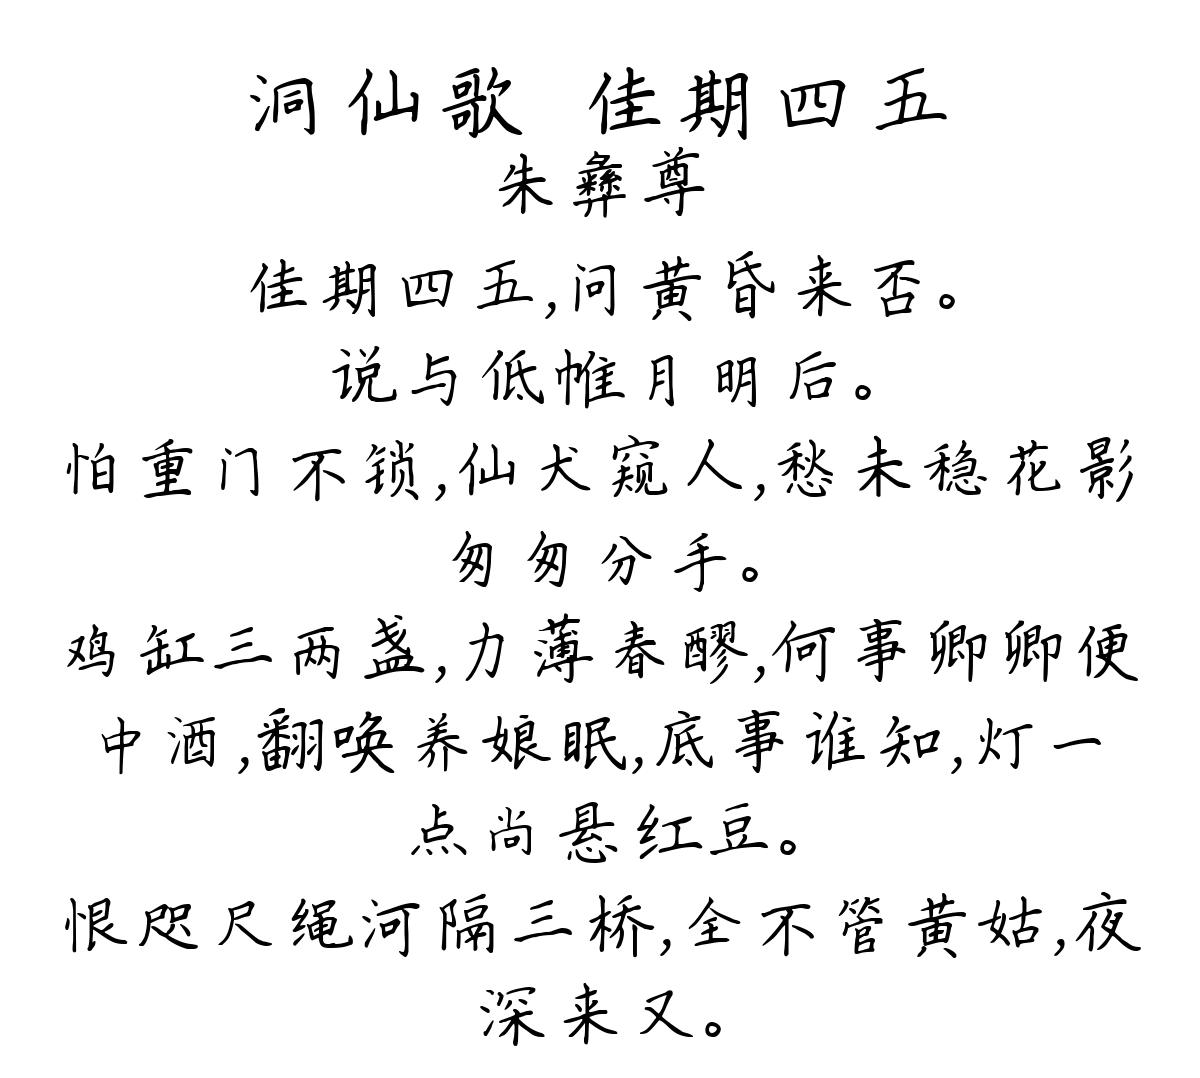 洞仙歌 佳期四五
朱彝尊
佳期四五,问黄昏来否。
说与低帷月明后。
怕重门不锁,仙犬窥人,愁未稳花影
匆匆分手。
鸡缸三两盏,力薄春醪,何事卿卿便
中酒,翻唤养娘眠,底事谁知,灯一
点尚悬红豆。
恨咫尺绳河隔三桥,全不管黄姑,夜
深来又。